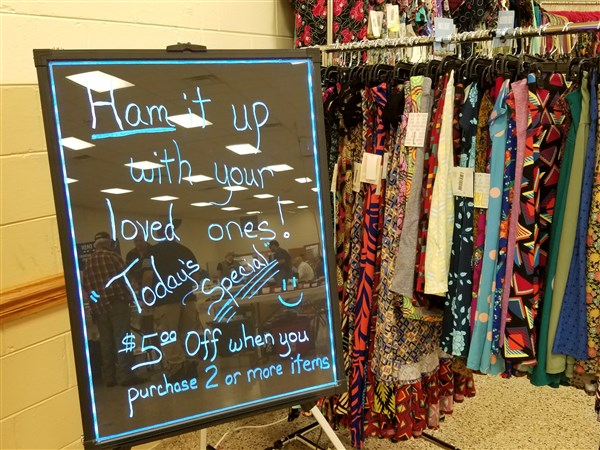 Ham it up
with your
loved ones!
"Today's Special"
$5.00 Off when you
purchase 2 or more items